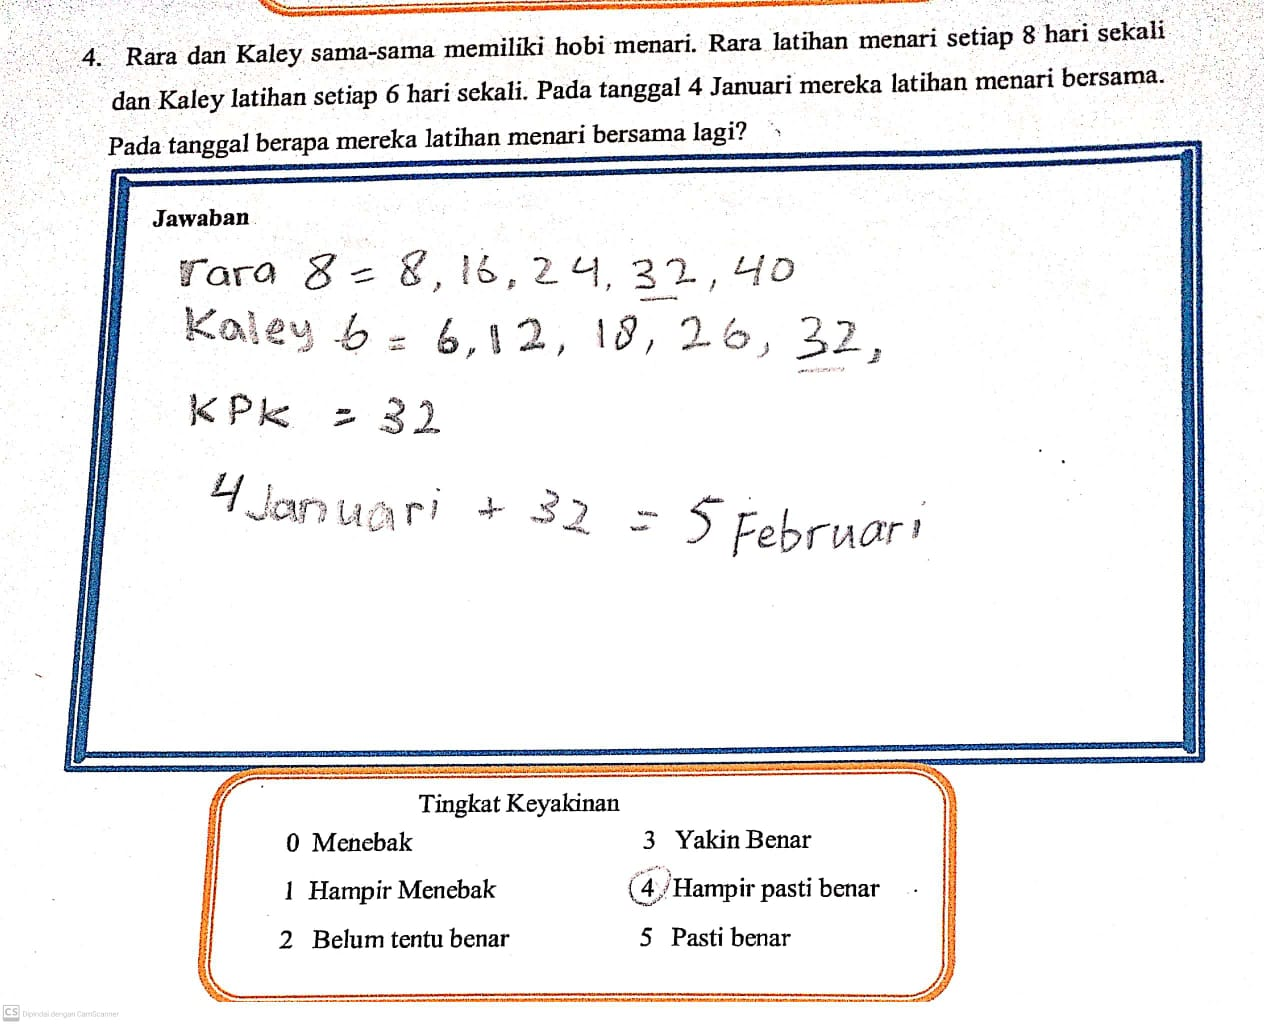 4. Rara dan Kaley sama-sama memiliki hobi menari. Rara latihan menari setiap 8 hari sekali
dan Kaley latihan setiap 6 hari sekali. Pada tanggal 4 Januari mereka latihan menari bersama.
Pada tanggal berapa mereka latihan menari bersama lagi?
Jawaban
rara 8 = 8, 16, 24, 32, 40
Kaley 6 = 6, 12, 18, 26, 32,
KPK = 32
4 Januari + 32 = 5 Februari
Tingkat Keyakinan
0 Menebak 3 Yakin Benar
1 Hampir Menebak 4 Hampir pasti benar
2 Belum tentu benar 5 Pasti benar
CS Dipindai dengan CamScanner